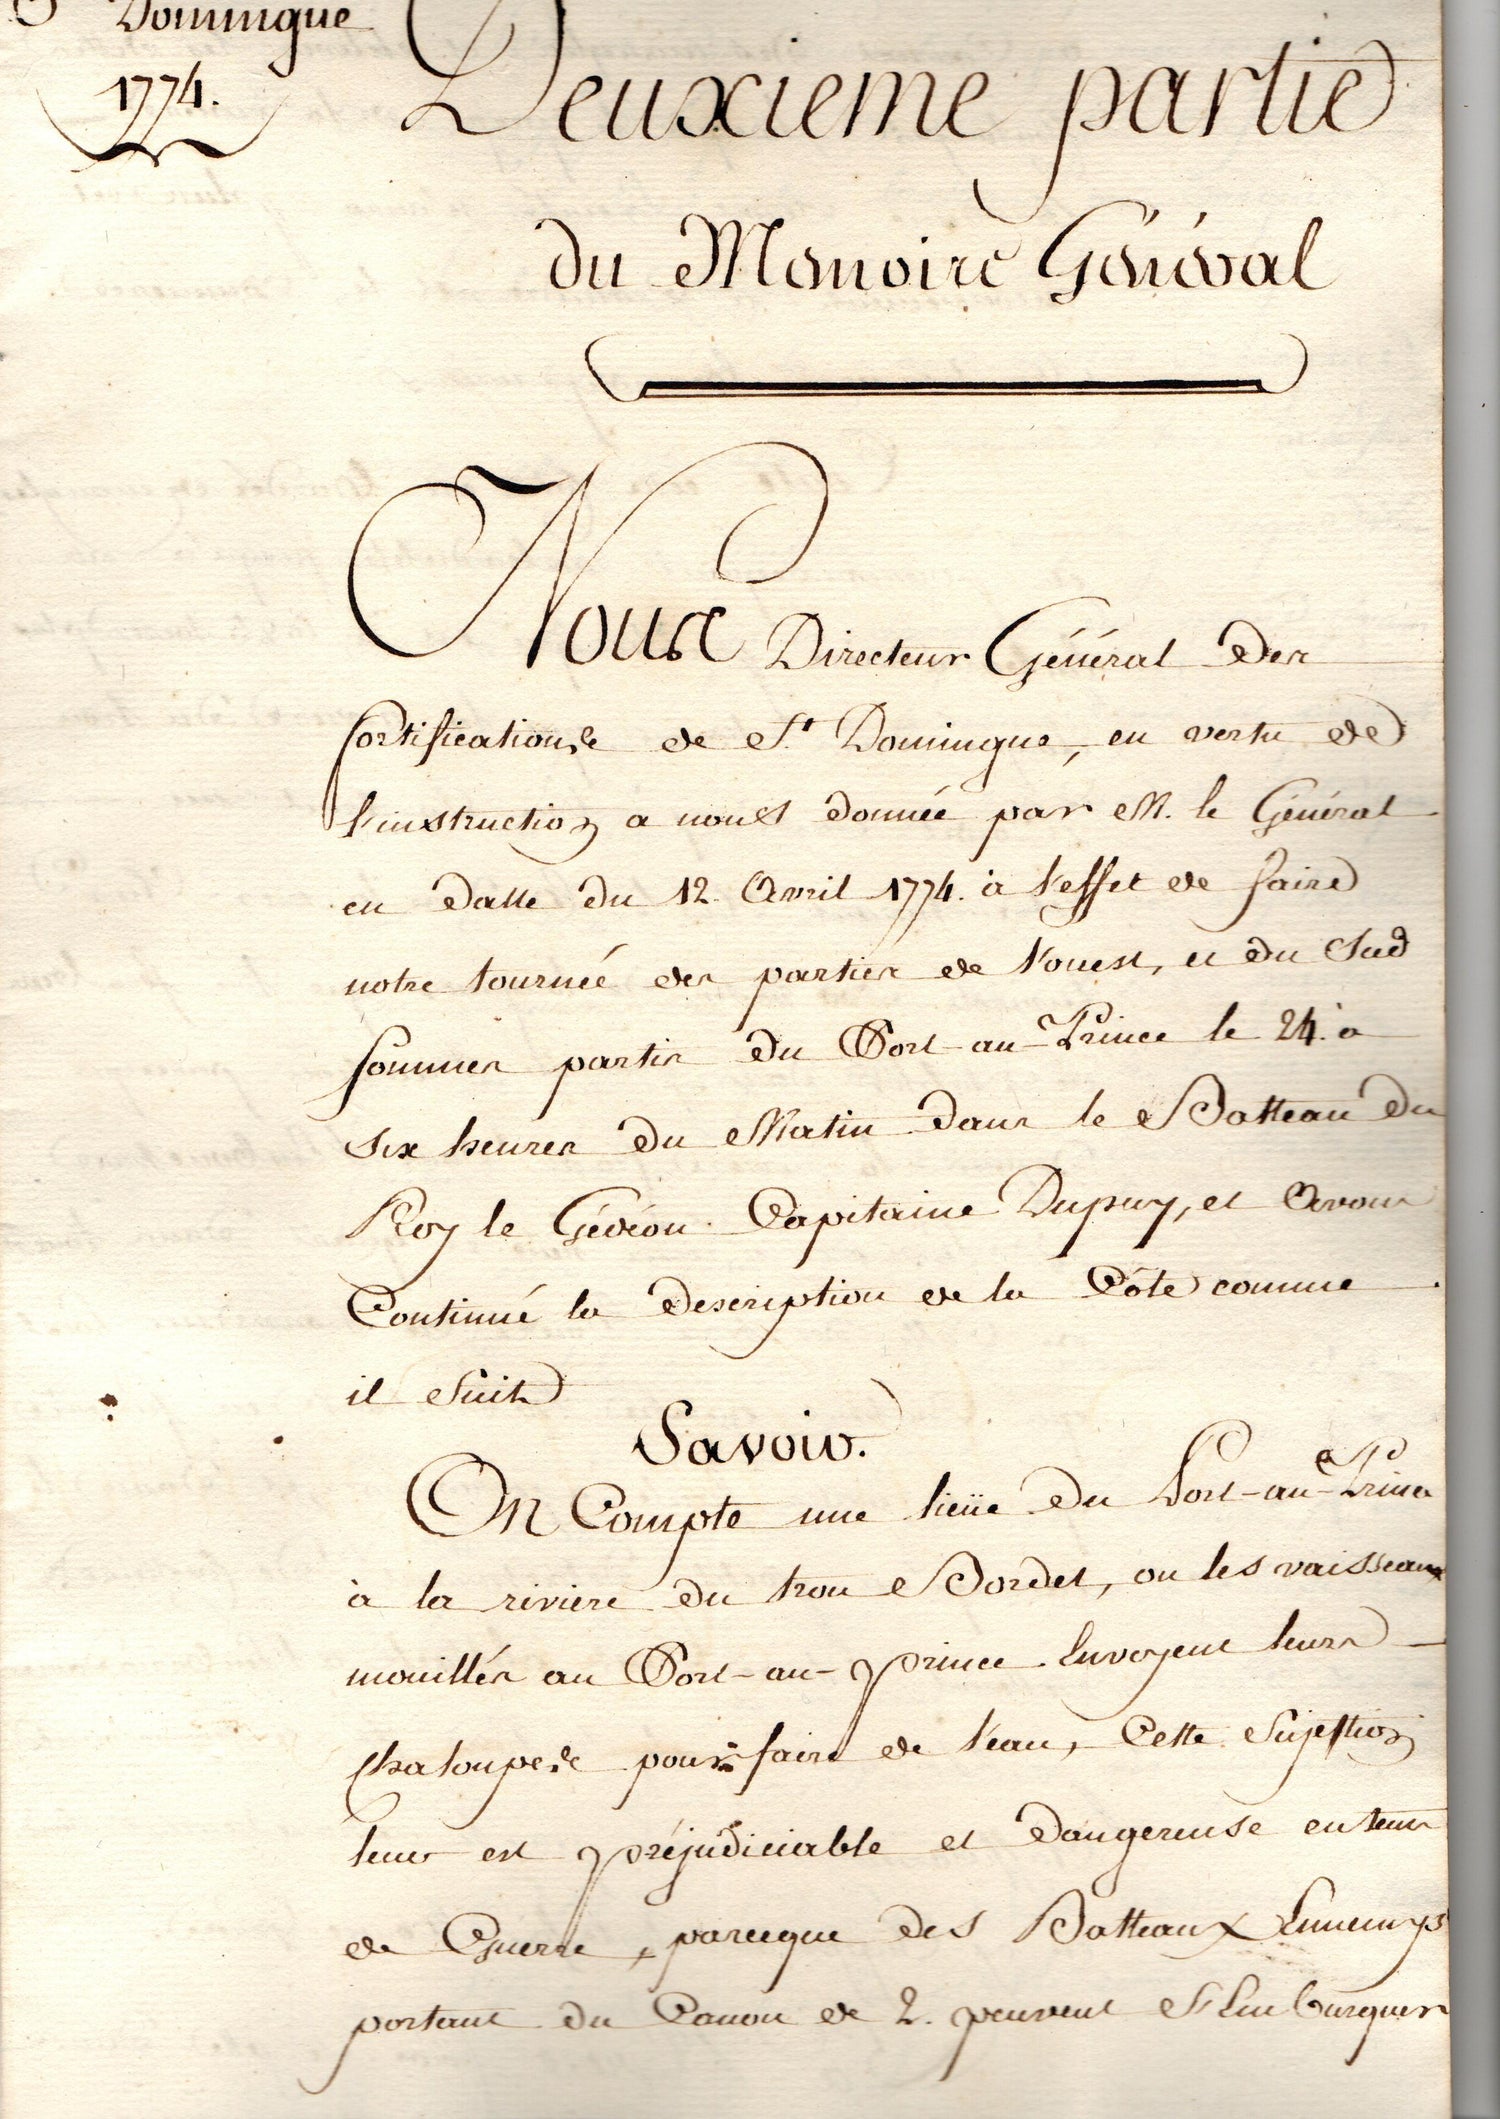 S Domingue
1774.
Deuxieme partie
du Memoire Général
Nous Directeur Général des
fortifications de St. Domingue, en vertu de
l'instruction a nous donnée par M. le Général
en datte du 12. Avril 1774. à l'effet de faire
notre tournée des parties de l'ouest, et du Sud
sommes partis du Port-au-Prince le 24. à
six heures du Matin dans le Batteau du
Roy le Gédéon. Capitaine Dupuy, et Avons
Continué la description de la Côte comme
il Suit
Savoir.
On Compte une lieüe du Port-au-Prince
à la riviere du trou Bordet, ou les vaisseaux
mouillés au Port-au-prince Envoyent leurs
Chaloupes pour faire de l'eau, Cette Sujettion
leur est préjudiciable et dangereuse en tems
de Guerre, parceque des Batteaux Ennemys
portant du Canon de 2. peuvent S'Embusquer